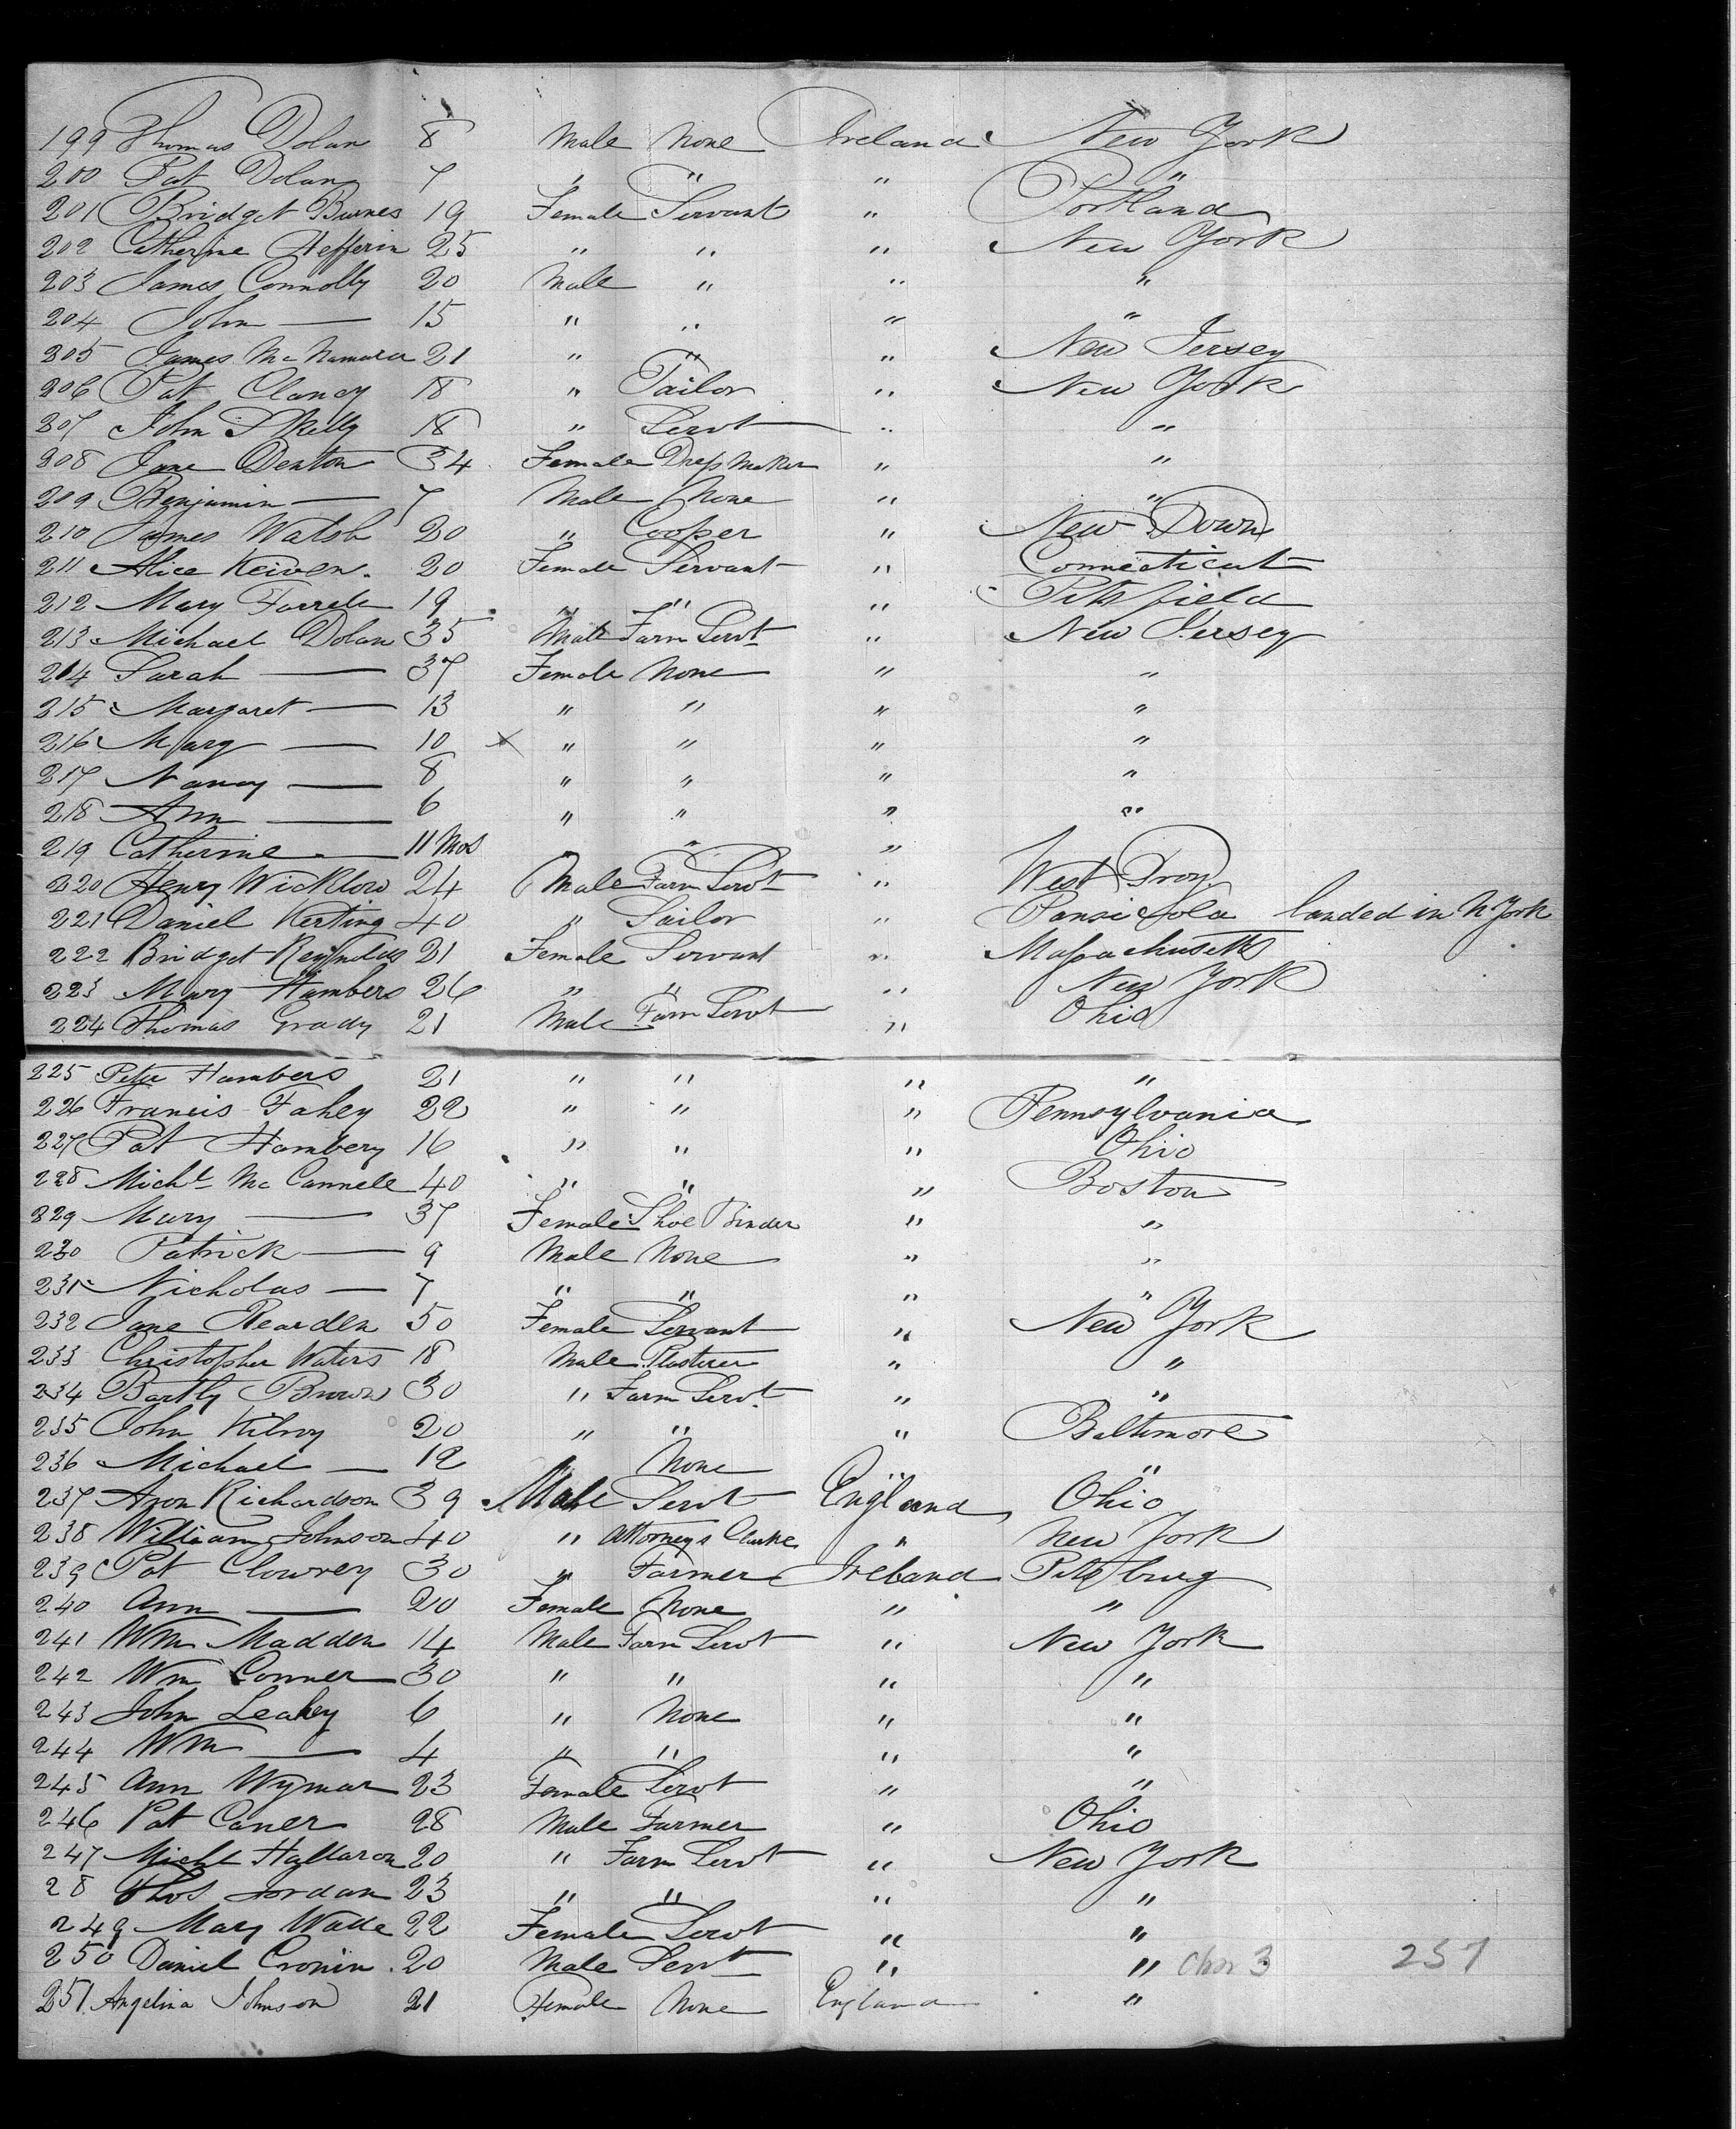 199 Thomas Dolan 8 Male None Ireland New York
200 Pat Dolan 7 " " " "
201 Bridget Burnes 19 Female Servant " Portland
202 Catherine Hefferin 25 " " " New York
203 James Connolly 20 Male " " "
204 John — 15 " " " "
205 James McNamara 21 " " " New Jersey
206 Pat Clancy 18 " Tailor " New York
207 John Skelly 18 " Servt " "
208 Jane Denton 34 Female Dress Maker " "
209 Benjamin — 7 Male None " "
210 James Walsh 20 " Cooper " New Town
211 Alice Keiven 20 Female Servant " Connecticut
212 Mary Farrele 19 " " " Pittsfield
213 Michael Dolan 35 Male Farm Servt " New Jersey
214 Sarah — 37 Female None " "
215 Margaret — 13 " " " "
216 Mary — 10 x " " " "
217 Nancy — 8 " " " "
218 Ann — 6 " " " "
219 Catherine — 11 Mos " " "
220 Henry Wicklow 24 Male Farm Servt " West Troy
221 Daniel Kerting 40 " Sailor " Pansicola landed in N York
222 Bridget Reynolds 21 Female Servant " Massachusetts
223 Mary Hambers 26 " " " New York
224 Thomas Grady 21 Male Farm Servt " Ohio
225 Peter Hambers 21 " " " "
226 Francis Fahey 22 " " " Pennsylvania
227 Pat Hambery 16 " " " Ohio
228 Michl McCannele 40 " " " Boston
229 Mary — 37 Female Shoe Binder " "
230 Patrick — 9 Male None " "
231 Nicholas — 7 " " " "
232 Jane Rearden 50 Female Servant " New York
233 Christopher Waters 18 Male Plasterer " "
234 Bartly Brown 30 " Farm Servt " "
235 John Kilroy 20 " " " Baltimore
236 Michael — 12 " None " "
237 Aron Richardson 39 Male Servt England Ohio
238 William Johnson 40 " Attorneys Clarke " New York
239 Pat Clowrey 30 " Farmer Ireland Pittsburg
240 Ann — 20 Female None " "
241 Wm Madden 14 Male Farm Servt " New York
242 Wm Conner 30 " " " "
243 John Leahey 6 " None " "
244 Wm — 4 " " " "
245 Ann Wymar 23 Female Servt " "
246 Pat Caner 28 Male Farmer " Ohio
247 Michl Hallaron 20 " Farm Servt " New York
28 Thos Jordan 23 " " " "
249 Mary Walle 22 Female Servt " "
250 Daniel Cronin 20 Male Servt " " 3 257
251 Angelina Johnson 21 Female None England "